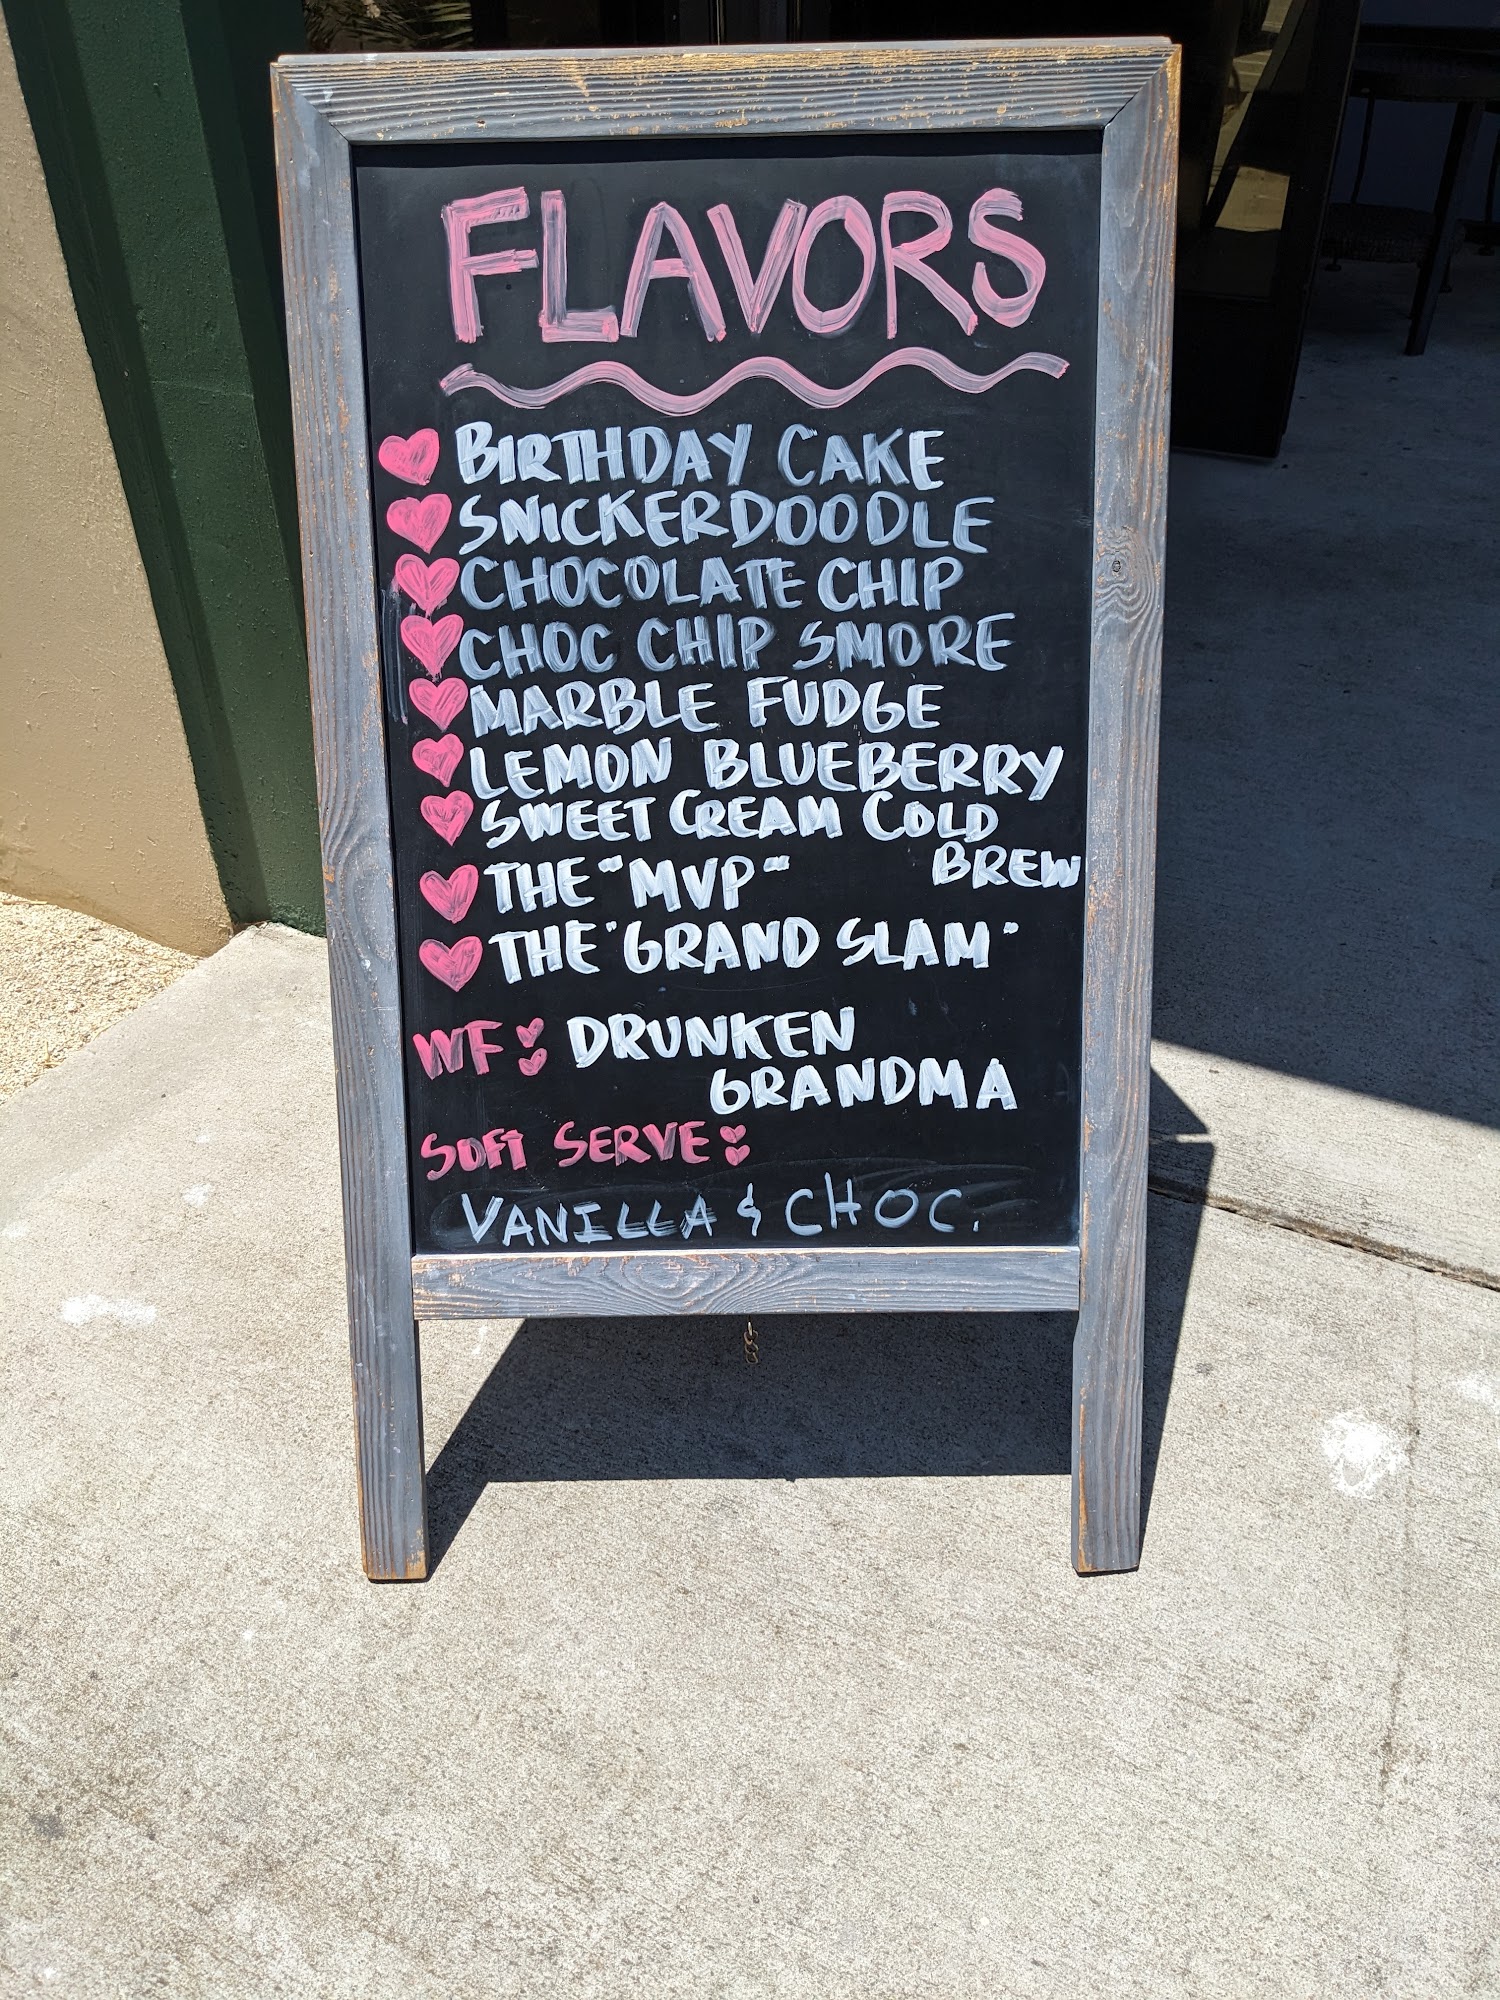 FLAVORS
BIRTHDAY CAKE
SNICKERDOODLE
CHOCOLATE CHIP
CHOC CHIP SMORE
MARBLE FUDGE
LEMON BLUEBERRY
SWEET CREAM COLD
BREW
THE "MVP"
THE "GRAND SLAM"
WF: DRUNKEN
GRANDMA
SOFT SERVE:
VANILLA & CHOC.